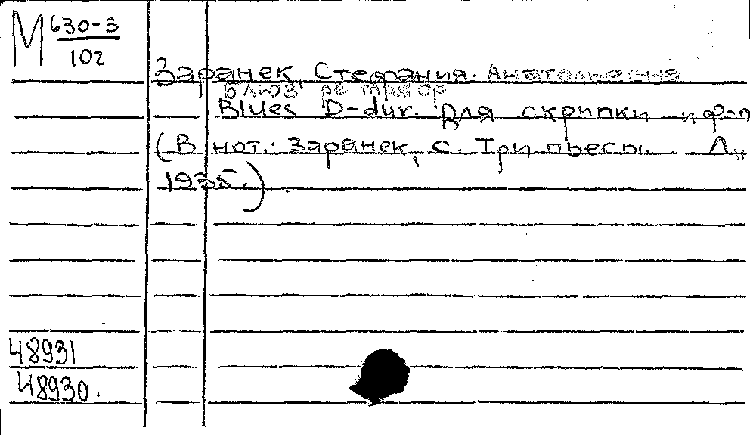 М 630-3
102
Заранек, Стефания Анатольевна
Блюз ре мажор
Blues D-dur. Для скрипки и ф-п
(В нот.: Заранек, С. Три пьесы. Л.,
1935.)
48931
48930.